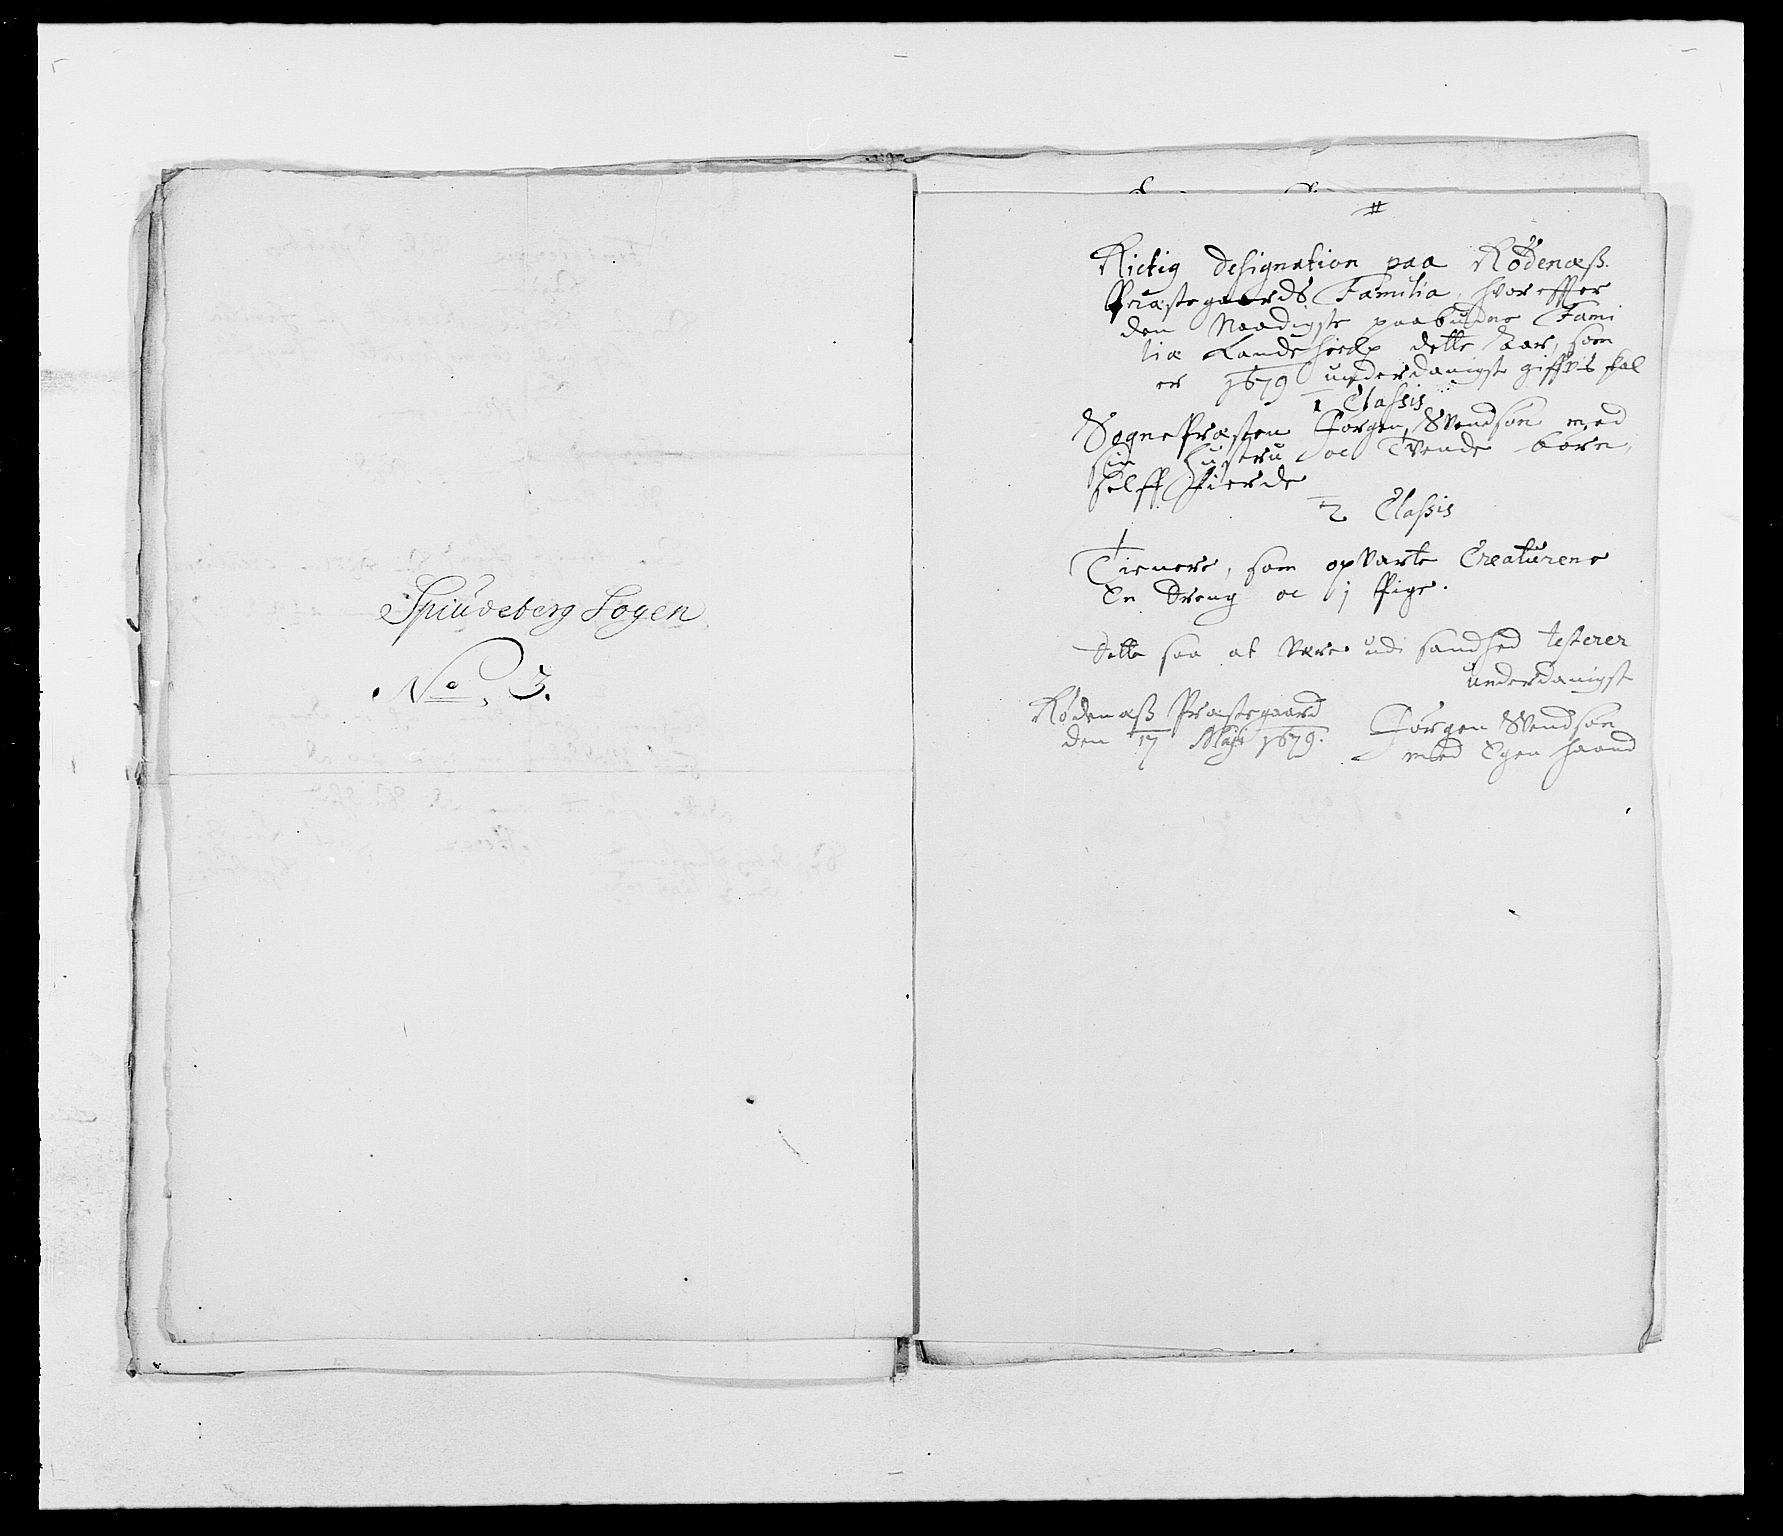 Spiudeberg Sogen
No. 3.
#
Rictig Designation paa Rødenæß
Præstegaards Familia, hvor effter
den Naadigste paabudne Fami
liæ dette Aar, som
er 1679 underdanigste giffvis skal
1 Classis
SognePræsten Jørgen Svendsøn med
sin Hustru oc Tvende børn,
self fierde
2 Classis
Tienere, som opvarte Creaturene
En Dreng oc j Pige.
Dette saa at være udi sandhed testerer
underdanigst
Rødenæß Præstegaard
den 17 Maji 1679.
Jørgen Svendsøn
med Egen haand